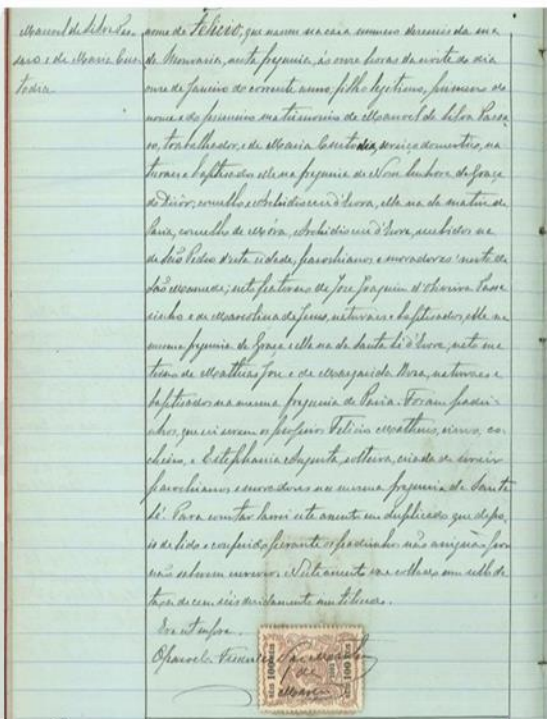 Manoel da Silva Pas-
saro e de Maria Cus-
todia.
nome de Felicio, que nasceu na casa numero dezeseis da rua
da Mouraria, desta freguesia, ás onze horas da noite do dia
onze de Janeiro do corrente anno, filho legitimo, primeiro do
nome e do primeiro matrimonio de Manoel da Silva Passa-
ro, trabalhador, e de Maria Custodia, serviço domestico, na-
turaes e baptisados elle na freguesia de Nossa Senhora da Graça
do Divôr, concelho e Archidiocese d'Evora, ella na da matriz de
Pavia, concelho de Móra, Archidiocese d'Evora, recebidos na
de São Pedro d'esta cidade, parochianos e moradores n'esta de
São Mamede; neto paterno de Jose Joaquim d'Oliveira Passa-
rinho e de Marcolina de Jesus, naturaes e baptisados, elle na
mesma freguesia da Graça e ella na da Santa Sé d'Evora, neto ma-
terno de Mathias Jose e de Margarida Rosa, naturaes e
baptisados na mesma freguesia de Pavia. Foram padri-
nhos, que sei serem os proprios Felicio Matheus, viuvo, co-
cheiro, e Estephania Augusta, solteira, criada de servir
parochianos e moradores na mesma freguesia da Santa
Sé. Para constar lavrei este assento em duplicado que depo-
is de lido e conferido perante os padrinhos não assignão por
não saberem escrever. N'este assento vae collado um sello de
taxa de cem réis devidamente inutilisado.
Era ut supra.
O parocho Frederico
100 RÉIS
100 RÉIS